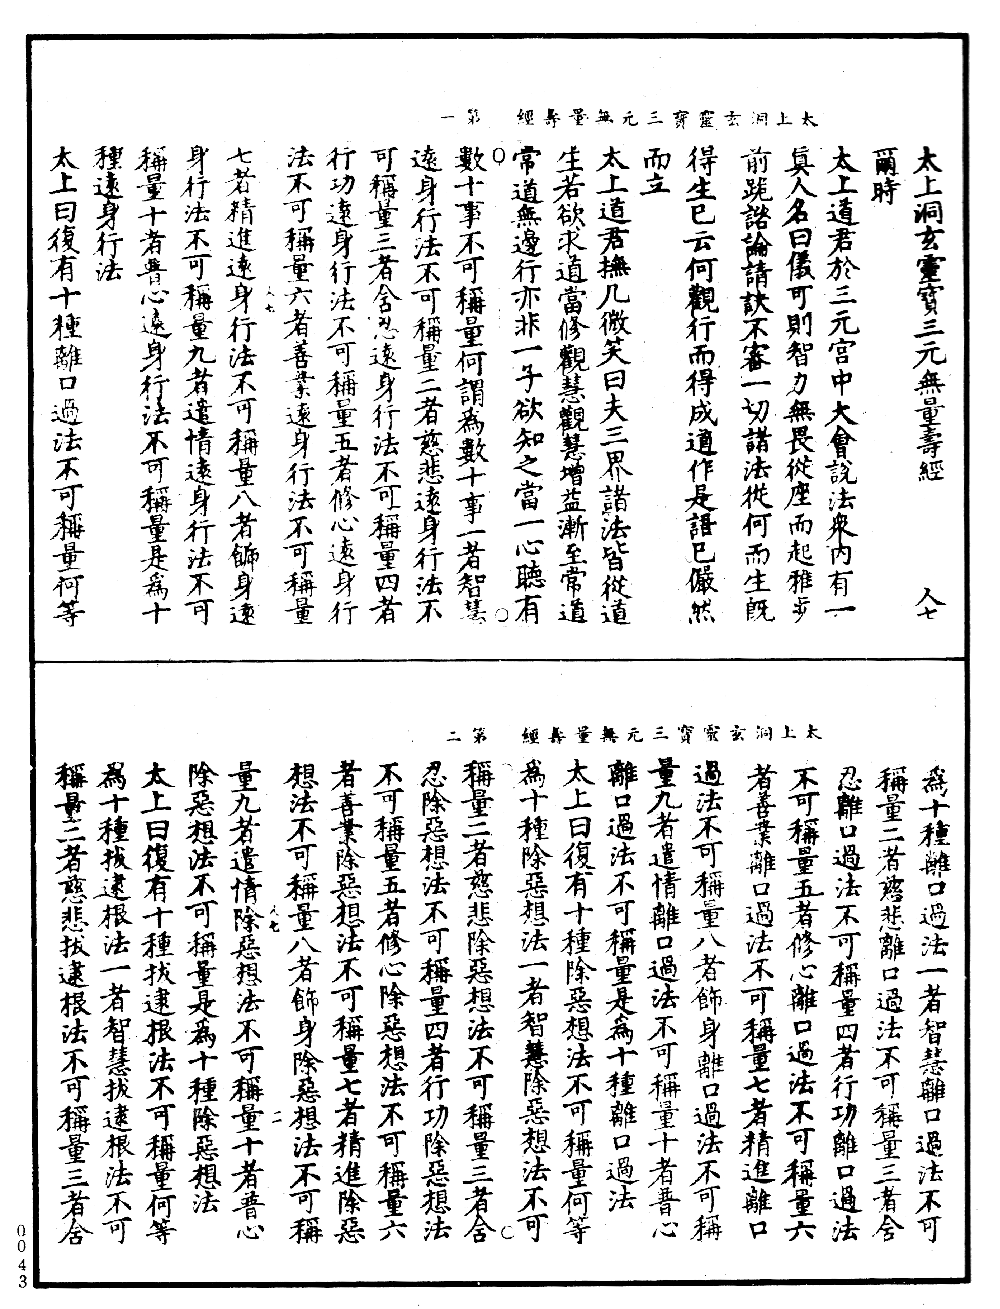 太上洞玄靈寶三元無量壽經 第一
太上洞玄靈寶三元無量壽經 人七
爾時
太上道君於三元宮中大會說法衆內有一
眞人名曰儀可則智力無畏從座而起雅步
前跪諮論請訣不審一切諸法從何而生旣
得生已云何觀行而得成道作是語已儼然
而立
太上道君撫几微笑曰夫三界諸法皆從道
生若欲求道當修觀慧觀慧增益漸至常道
常道無邊行亦非一子欲知之當一心聽有
數十事不可稱量何謂爲數十事一者智慧
遠身行法不可稱量二者慈悲遠身行法不
可稱量三者舍忍遠身行法不可稱量四者
行功遠身行法不可稱量五者修心遠身行
法不可稱量六者善業遠身行法不可稱量
人七
七者精進遠身行法不可稱量八者飾身遠
身行法不可稱量九者遣情遠身行法不可
稱量十者普心遠身行法不可稱量是爲十
種遠身行法
太上曰復有十種離口過法不可稱量何等
太上洞玄靈寶三元無量壽經 第二
爲十種離口過法一者智慧離口過法不可
稱量二者慈悲離口過法不可稱量三者舍
忍離口過法不可稱量四者行功離口過法
不可稱量五者修心離口過法不可稱量六
者善業離口過法不可稱量七者精進離口
過法不可稱量八者飾身離口過法不可稱
量九者遣情離口過法不可稱量十者普心
離口過法不可稱量是爲十種離口過法
太上曰復有十種除惡想法不可稱量何等
爲十種除惡想法一者智慧除惡想法不可
稱量二者慈悲除惡想法不可稱量三者舍
忍除惡想法不可稱量四者行功除惡想法
不可稱量五者修心除惡想法不可稱量六
者善業除惡想法不可稱量七者精進除惡
想法不可稱量八者飾身除惡想法不可稱
人七 二
量九者遣情除惡想法不可稱量十者普心
除惡想法不可稱量是爲十種除惡想法
太上曰復有十種拔逮根法不可稱量何等
爲十種拔逮根法一者智慧拔逮根法不可
稱量二者慈悲拔逮根法不可稱量三者舍
0043